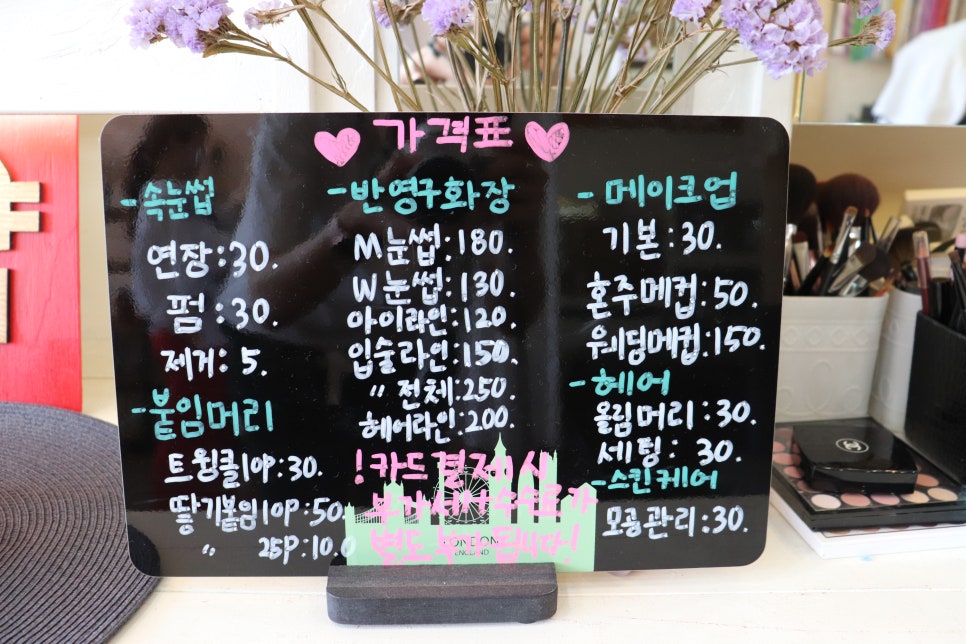 가격표
-속눈썹
연장:30.
펌:30.
제거:5.
-붙임머리
트윙클10P:30.
땋기붙임10P:50
〃 25P:10.0
-반영구화장
M눈썹:180.
W눈썹:130.
아이라인:120.
입술라인:150.
〃 전체:250.
헤어라인:200.
!카드결제시
부가세와 수수료가
별도 부과 됩니다!
LONDON
ENGLAND
-메이크업
기본:30.
혼주메컵:50.
우ㅔ딩메컵:150.
-헤어
올림머리:30.
세팅:30.
-스킨케어
모공관리:30.